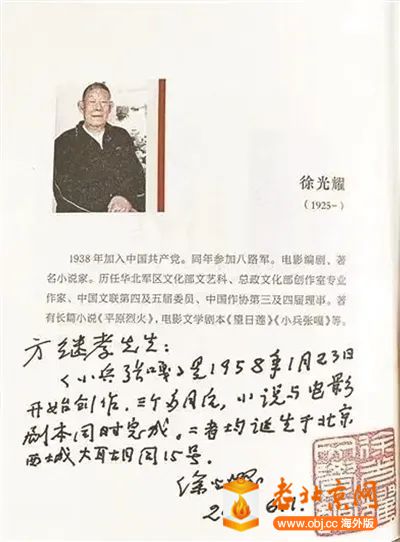 徐光耀
（1925－）
1938年加入中国共产党。同年参加八路军。电影编剧、著
名小说家。历任华北军区文化部文艺科、总政文化部创作室专业
作家、中国文联第四及五届委员、中国作协第三及四届理事。著
有长篇小说《平原烈火》，电影文学剧本《望日莲》《小兵张嘎》等。
方继孝先生：
《小兵张嘎》是1958年1月23日
开始创作，三个多月后，小说与电影
剧本同时完成。二者均诞生于北京
西城大耳胡同15号。
徐光耀
老北京网
www.obj.cc 海外版